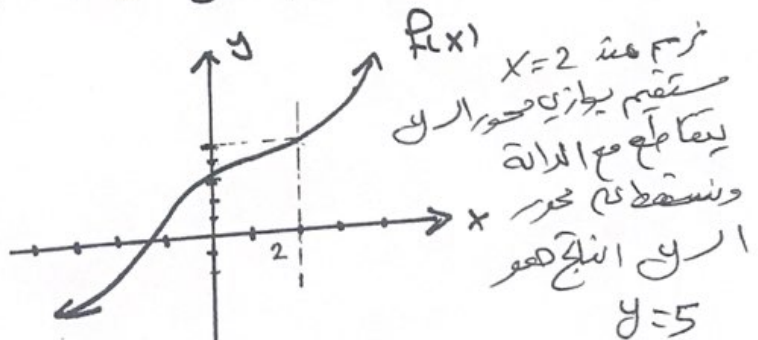 y
f(x)
نرسم عند x=2
مستقيم يوازي محور الـ y
يتقاطع مع الدالة
ونسقط على محور
الـ y الناتج هو
y=5
x
2